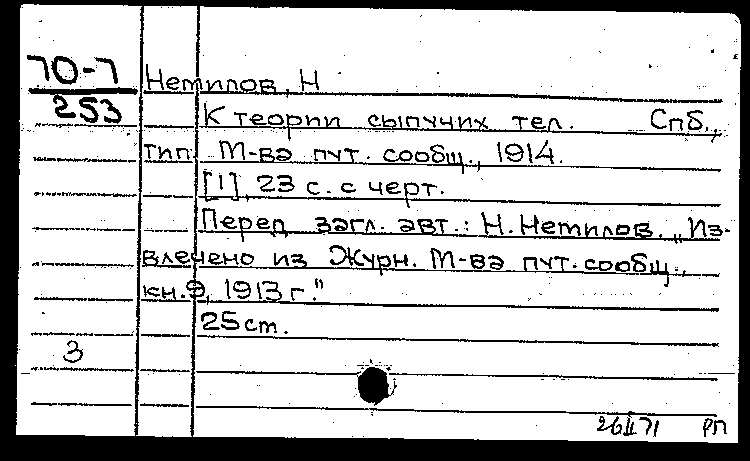 70-7
253
Нетилов, Н
К теории сыпучих тел. Спб.,
тип. М-ва пут. сообщ., 1914.
[1], 23 с. с черт.
Перед загл. авт.: Н. Нетилов. „Из-
влечено из Журн. М-ва пут. сообщ.,
кн. 9, 1913 г."
25 см.
3
26 II 71 РП